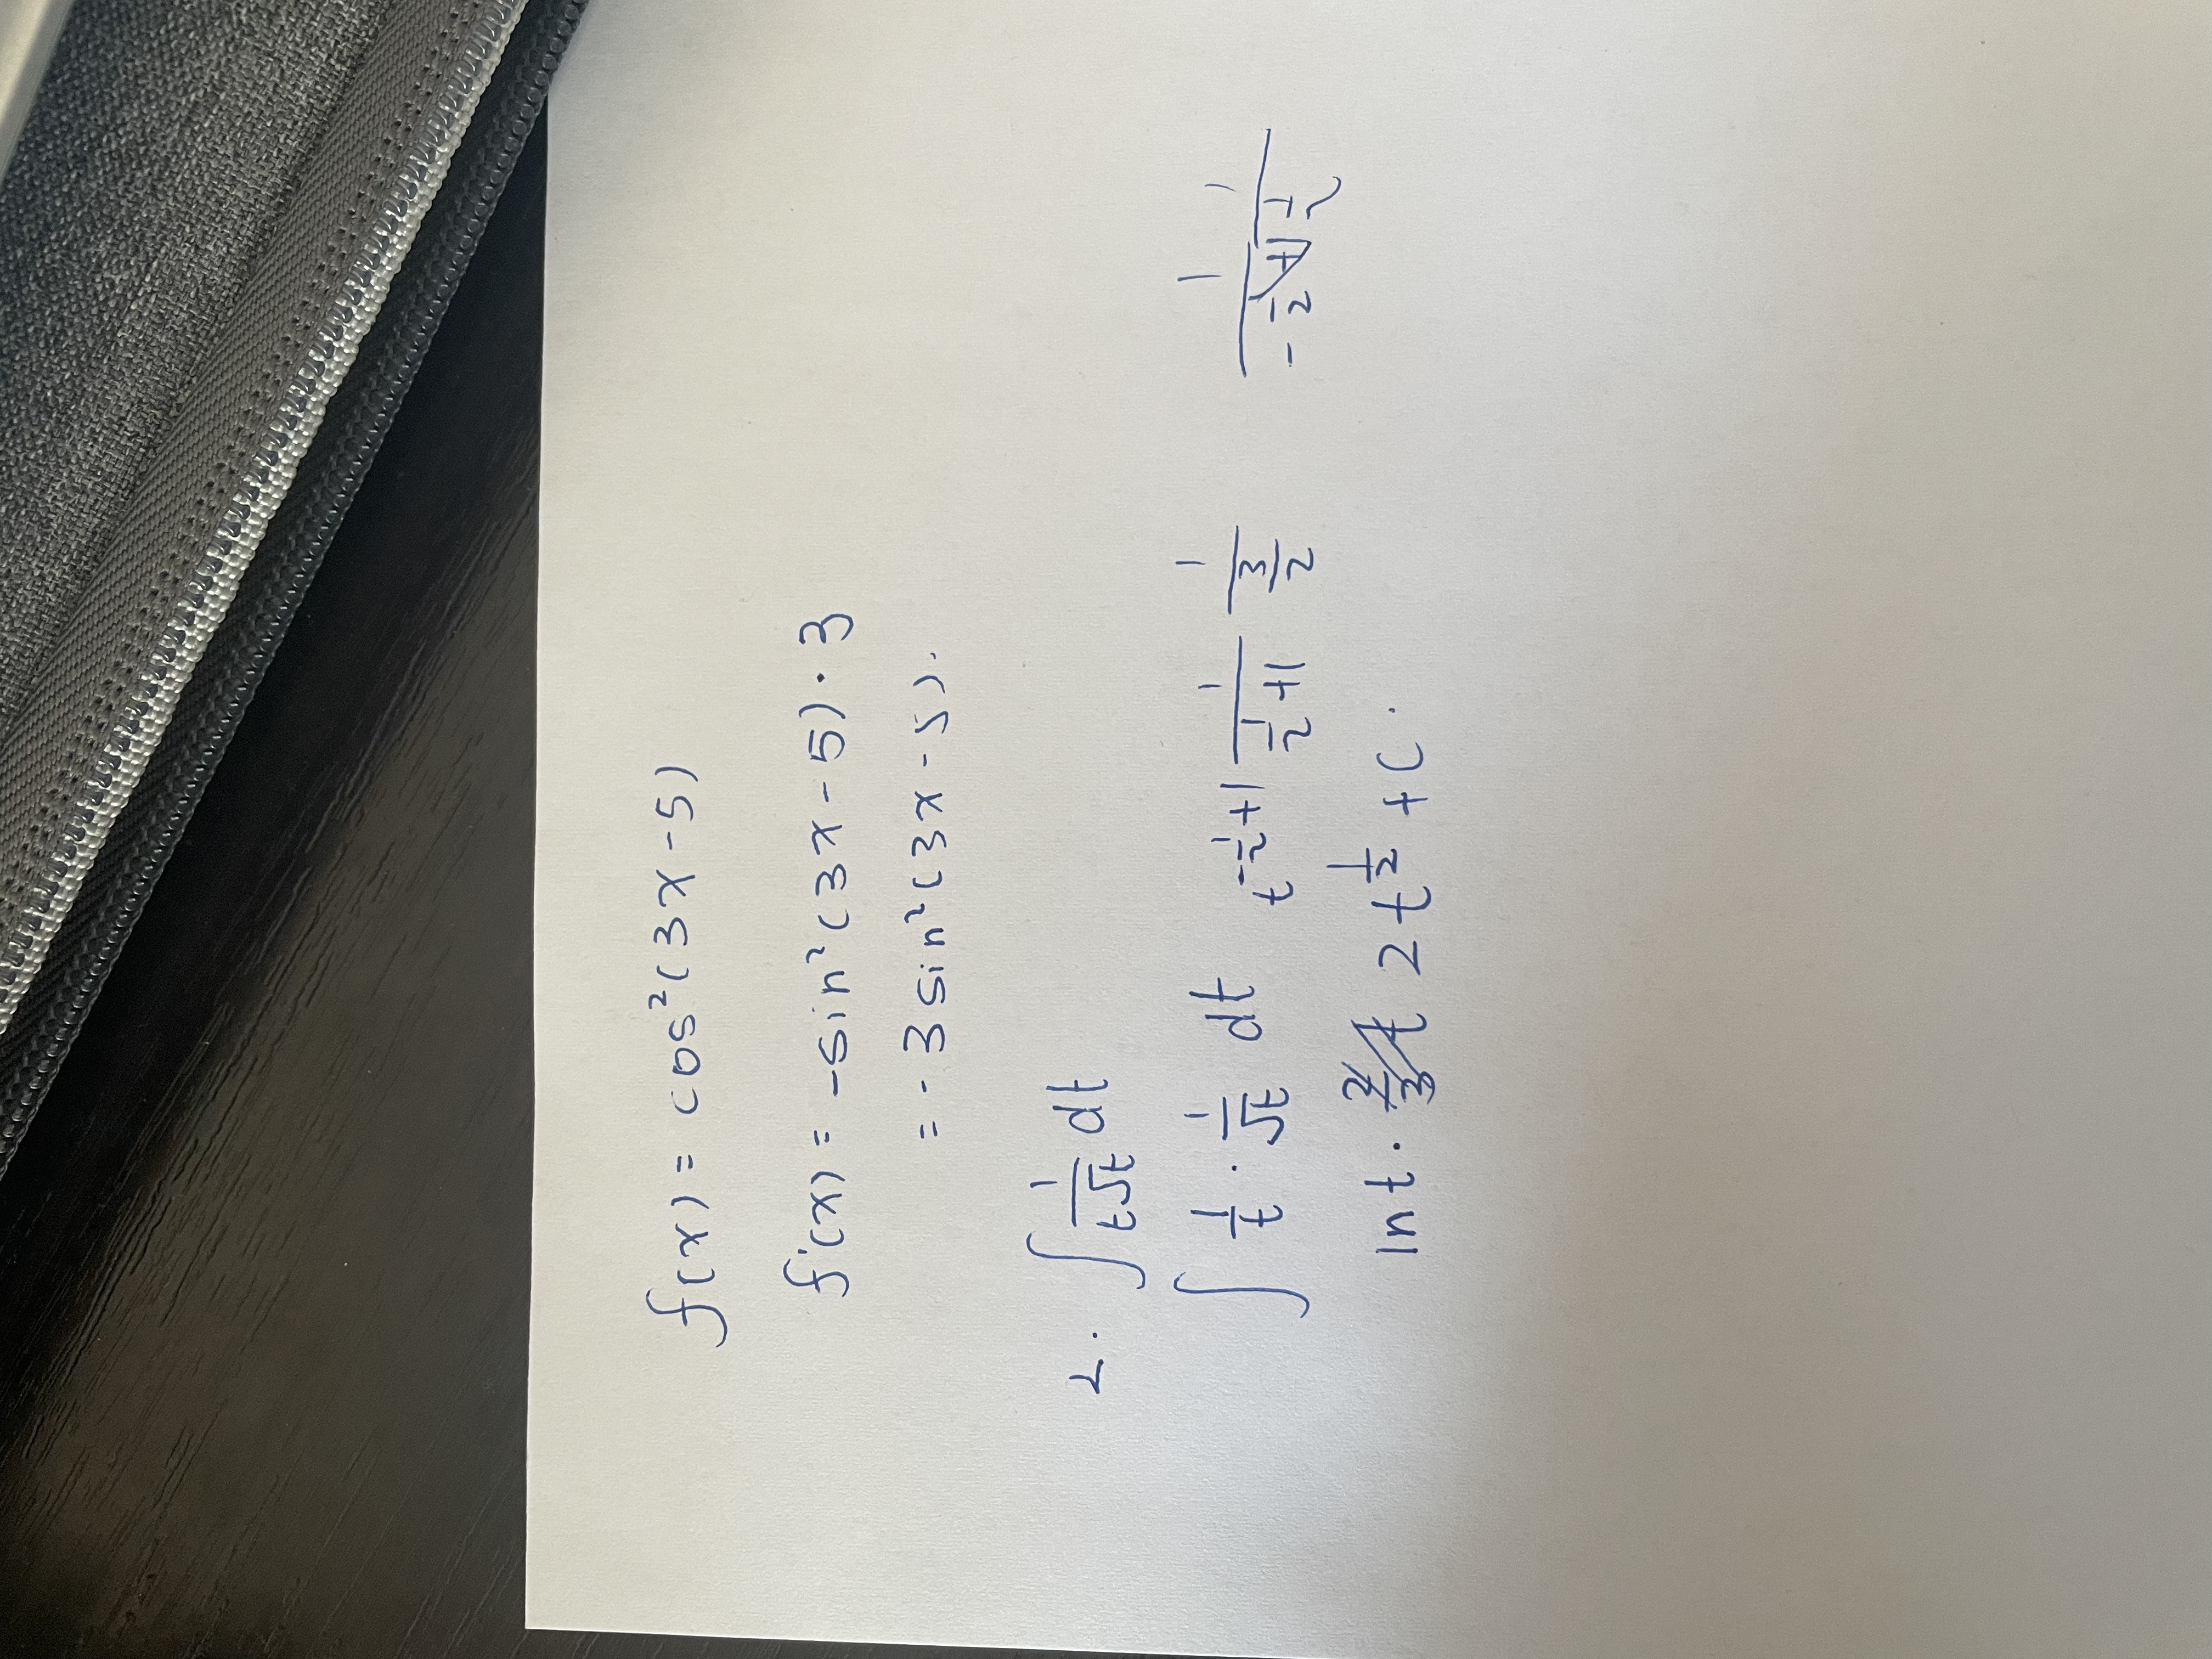 f(x) = cos²(3x-5)
f'(x) = -sin²(3x-5)·3
= -3sin²(3x-5).
2. ∫ 1/(t√t) dt
∫ 1/t · 1/√t dt t^(-1/2+1) 1/(1/2+1) 1/(3/2) 1/(-1/2+1) 1/(1/2)
ln t · 2t^(1/2) + C.